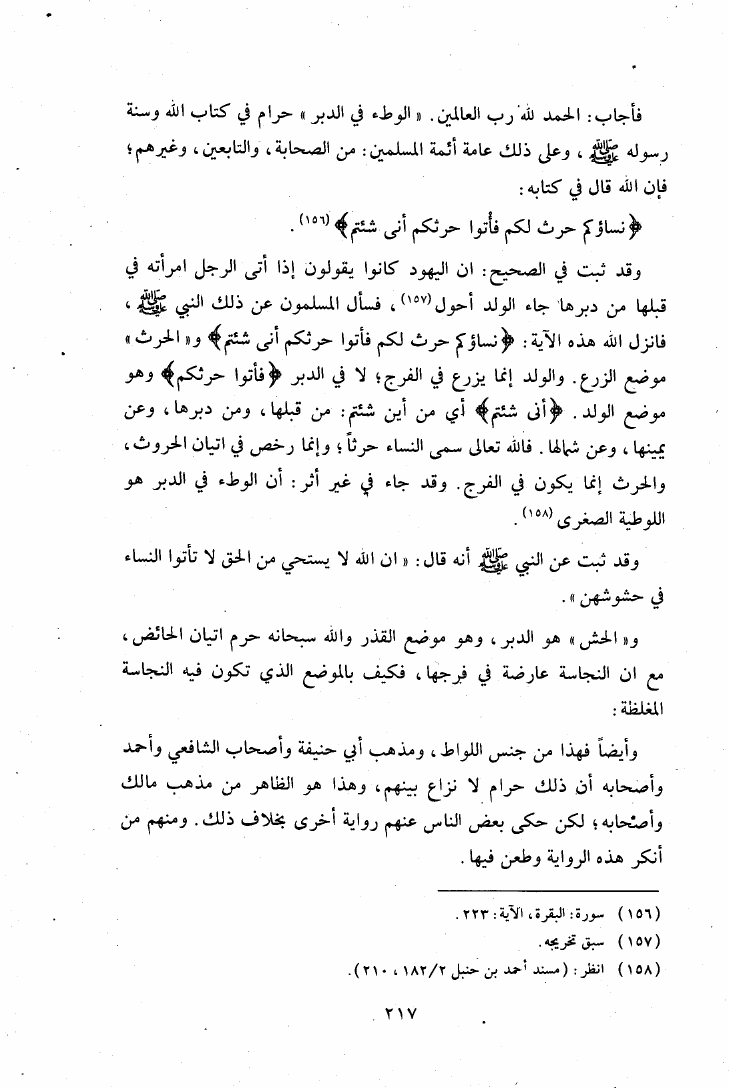 فأجاب: الحمد لله رب العالمين. « الوطء في الدبر » حرام في كتاب الله وسنة
رسوله ﷺ ، وعلى ذلك عامة أئمة المسلمين: من الصحابة، والتابعين، وغيرهم؛
فإن الله قال في كتابه:
﴿نساؤكم حرث لكم فأْتوا حرثكم أنى شئتم﴾ (١٥٦) .
وقد ثبت في الصحيح: ان اليهود كانوا يقولون إذا أتى الرجل امرأته في
قبلها من دبرها جاء الولد أحول (١٥٧) ، فسأل المسلمون عن ذلك النبي ﷺ ،
فانزل الله هذه الآية: ﴿نساؤكم حرث لكم فأتوا حرثكم أنى شئتم﴾ و« الحرث »
موضع الزرع. والولد إنما يزرع في الفرج؛ لا في الدبر ﴿فأتوا حرثكم﴾ وهو
موضع الولد. ﴿أنى شئتم﴾ أي من أين شئتم: من قبلها، ومن دبرها، وعن
يمينها، وعن شمالها. فالله تعالى سمى النساء حرثاً؛ وإنما رخص في اتيان الحروث،
والحرث إنما يكون في الفرج. وقد جاء في غير أثر: أن الوطء في الدبر هو
اللوطية الصغرى (١٥٨) .
وقد ثبت عن النبي ﷺ أنه قال: « ان الله لا يستحي من الحق لا تأتوا النساء
في حشوشهن ».
و« الحش » هو الدبر، وهو موضع القذر والله سبحانه حرم اتيان الحائض،
مع ان النجاسة عارضة في فرجها، فكيف بالموضع الذي تكون فيه النجاسة
المغلظة:
وأيضاً فهذا من جنس اللواط، ومذهب أبي حنيفة وأصحاب الشافعي وأحمد
وأصحابه أن ذلك حرام لا نزاع بينهم، وهذا هو الظاهر من مذهب مالك
وأصحابه؛ لكن حكى بعض الناس عنهم رواية أخرى بخلاف ذلك. ومنهم من
أنكر هذه الرواية وطعن فيها.
(١٥٦) سورة: البقرة، الآية: ٢٢٣.
(١٥٧) سبق تخريجه.
(١٥٨) انظر: (مسند أحمد بن حنبل ١٨٢/٢، ٢١٠).
٢١٧